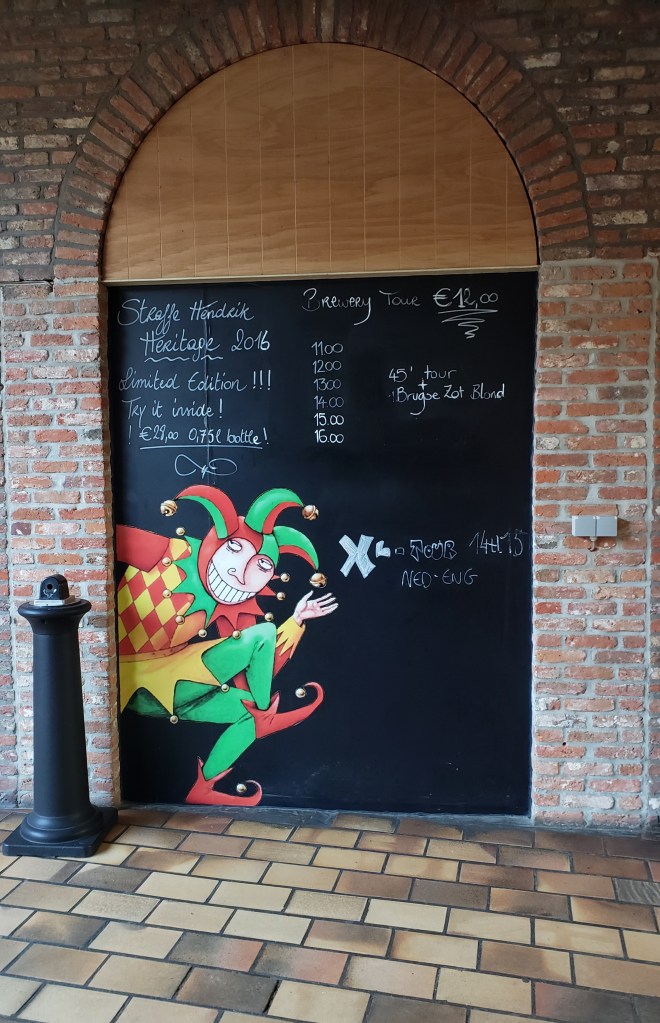 Straffe Hendrik
Heritage 2016
Limited Edition !!!
Try it inside!
! €29,00 0,75l bottle!
Brewery Tour €12,00
11.00
12.00
13.00
14.00
15.00
16.00
45' tour
+
Brugse Zot Blond
XL - TOUR 14H15
NED - ENG